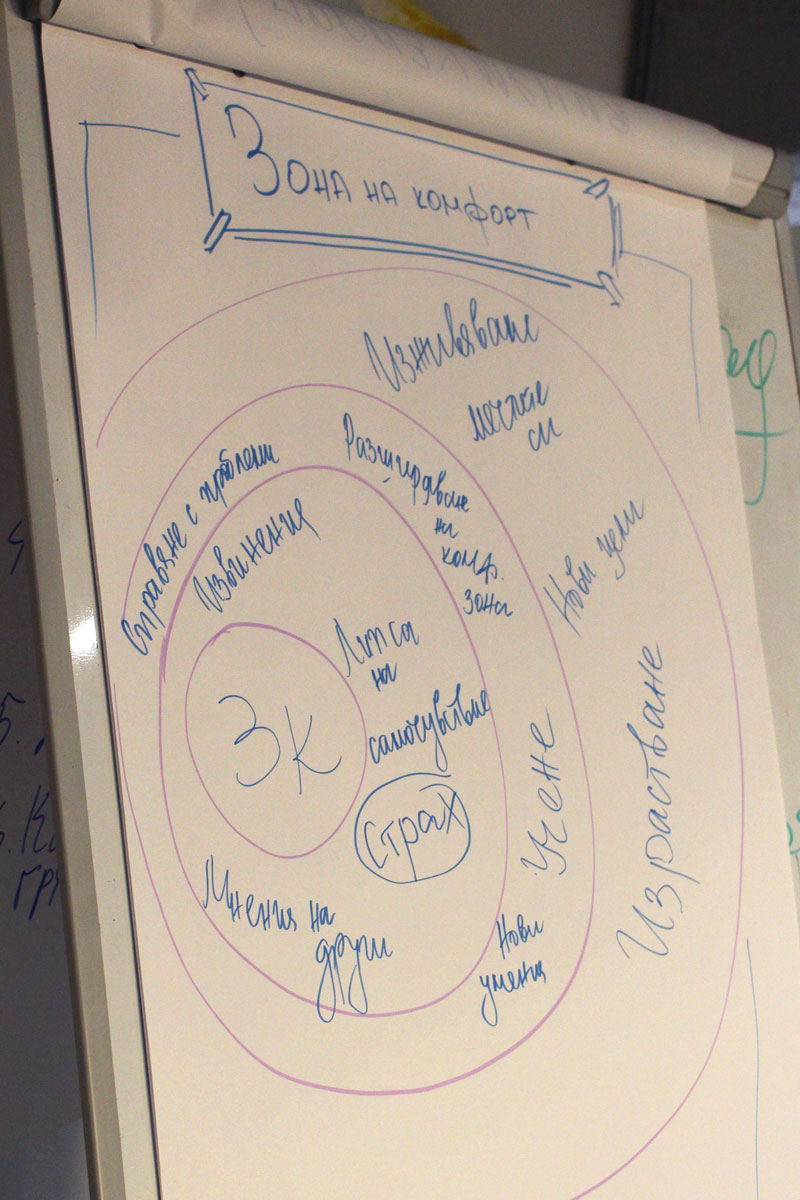 Зона на комфорт
Изживяване
мечтите
си
Справяне с проблеми
Разширяване
на
комф.
зона
Извинения
Нови цели
Липса
на
самочувствие
ЗК
Страх
Учене
Израстване
Мнения на
други
Нови
умения